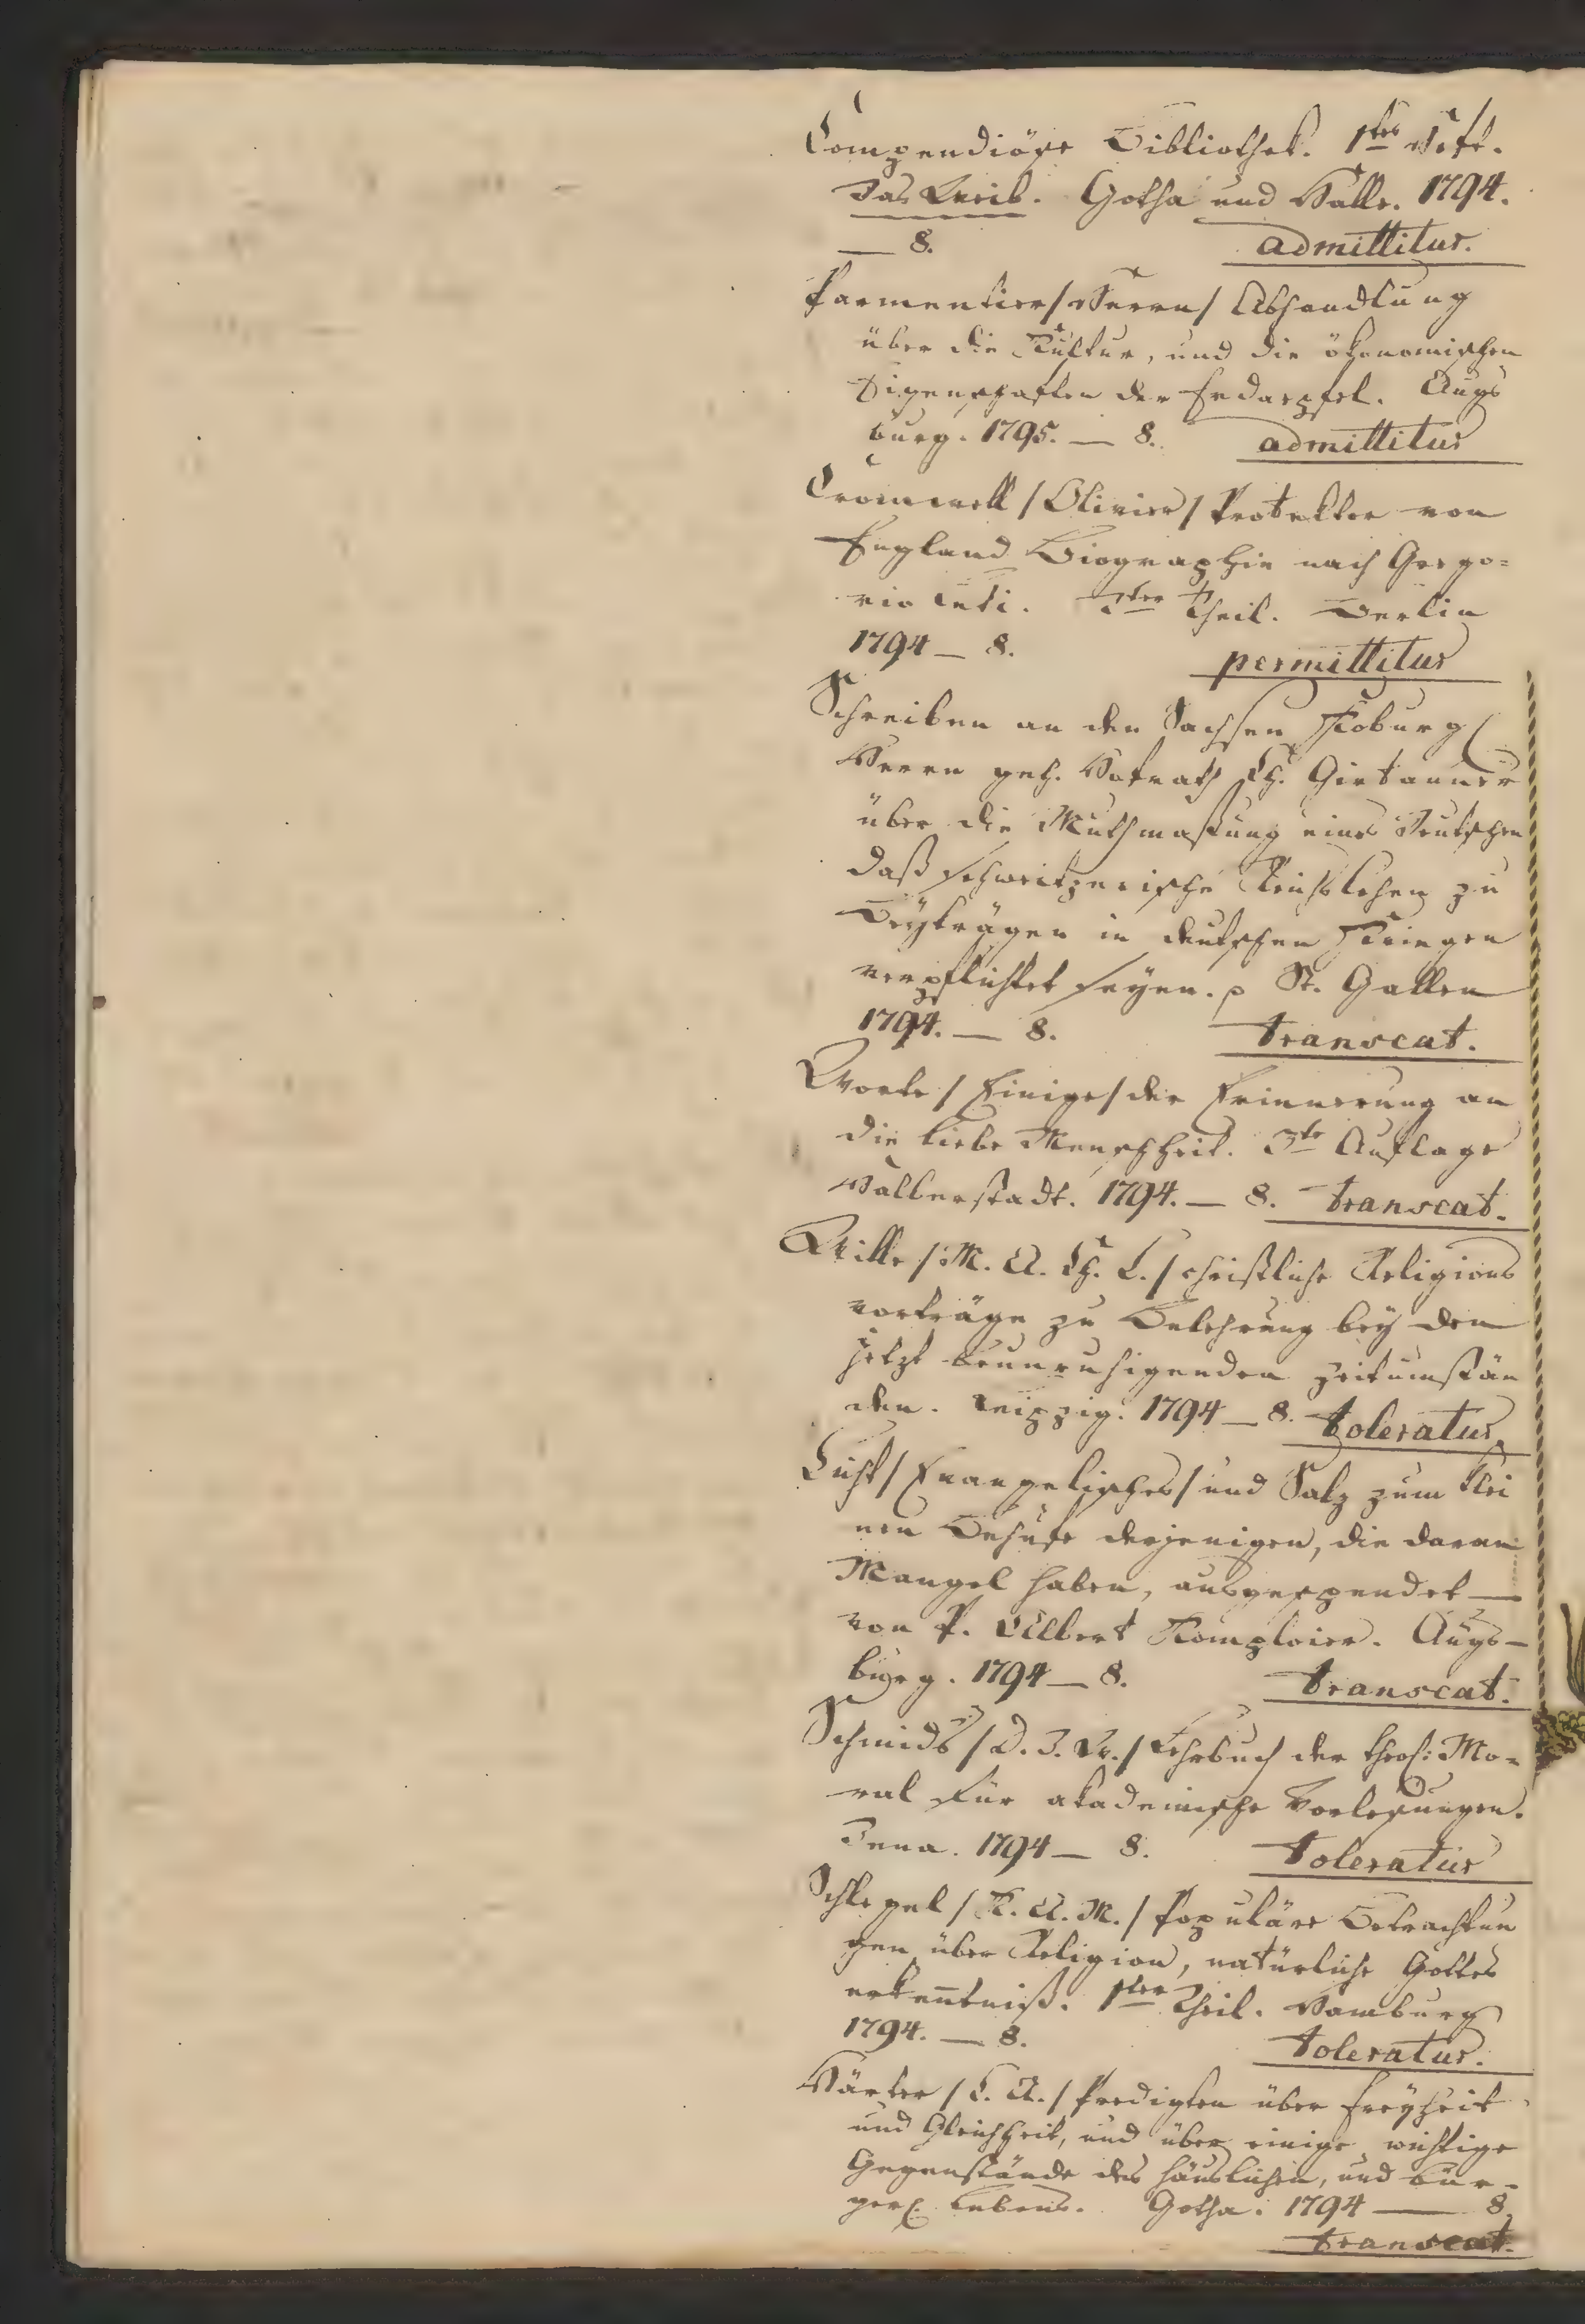 Compendiöse Bibliothek. 1tes Heft.
Das Weib. Gotha und Halle. 1794.
— 8. admittitur.
Parmentier / Herrn / Abhandlung
über die Kultur, und die ökonomischen
Eigenschaften der Erdaepfel. Augs
burg. 1795. — 8. admittitur
Cromwell / Olivier / Protektor von
England Biographie nach Grego=
rio Leti. Theil. Berlin
1794 — 8. permittitur
Schreiben an den Sachsen Koburg
Herrn geh. Hofrath Ch. Girtanner
über die Muthmaßung eines Deutschen
daß schweitzerische Reichslehen zu
Beyträgen in deutschen Kriegen
verpflichtet seyen. St. Gallen
1794. — 8. transeat.
Worte / Einige / der Erinnerung an
die liebe Menschheit. 3te Auflage
Halberstadt. 1794. — 8. transeat.
Wille / M. A. Ch. L. / christliche Religions
vorträge zu Belehrung bey den
jetzt beunruhigenden Zeitumstän
den. Leipzig. 1794 — 8. toleratur
Licht / Evangelisches / und Salz zum klei
nen Behufe derjenigen, die daran
Mangel haben, ausgespendet —
von P. Albert Komploier. Augs—
burg. 1794 — 8. transeat.
Schmids / D. J. W. / Lehrbuch der theol: Mo=
ral für akademische Vorlesungen.
Jena. 1794 — 8. toleratur
Schlegel / K. A. M. / Populäre Betrachtun
gen über Religion, natürliche Gottes
erkenntniß. 1ter Theil. Hamburg
1794. — 8. toleratur.
Härter / C. A. / Predigten über Freyheit
und Gleichheit, und über einige wichtige
Gegenstände des häuslichen, und bür=
gerl. Lebens. Gotha. 1794 — 8.
transeat.